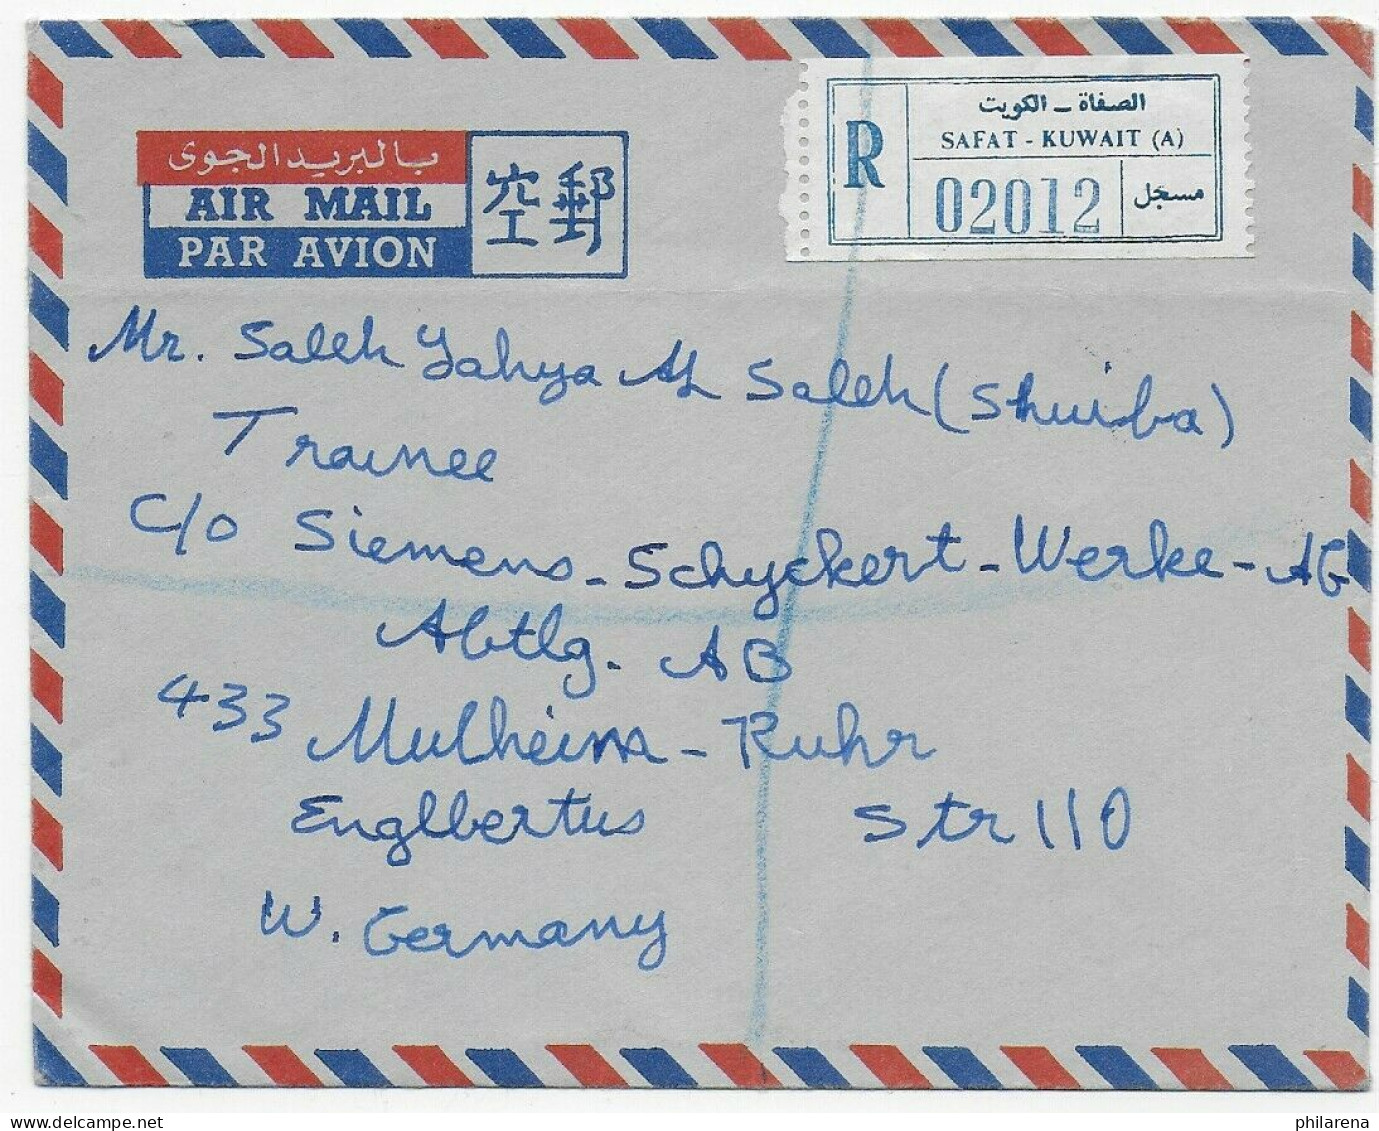 الصفاة - الكويت
SAFAT - KUWAIT (A)
R
02012
مسجل
بالبريد الجوى
AIR MAIL
PAR AVION
空郵
Mr. Saleh Yahya Al Saleh (Shuiba)
Trainee
C/o Siemens - Schyckert - Werke - AG
Abtlg. AB
433 Mulheim - Ruhr
Englbertus Str 110
W. Germany
philarena